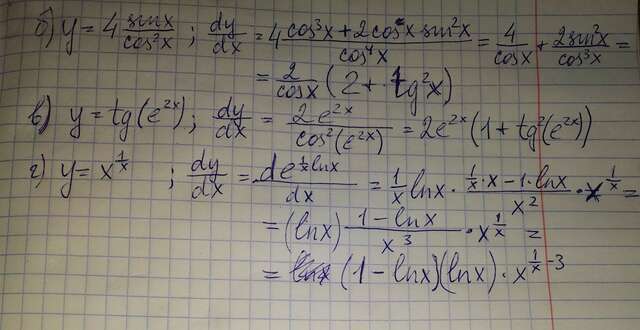 б) y = 4 sinx/cos²x ; dy/dx = 4 (cos³x + 2cosx·sin²x)/cos⁴x = 4/cosx + 2sin²x/cos³x =
= 2/cosx (2 + tg²x)
в) y = tg(e^(2x)) ; dy/dx = 2e^(2x)/cos²(e^(2x)) = 2e^(2x)(1 + tg²(e^(2x)))
г) y = x^(1/x) ; dy/dx = de^(1/x lnx)/dx = 1/x lnx · (1/x · x − 1 · lnx)/x² · x^(1/x) =
= (lnx) (1 − lnx)/x³ · x^(1/x) =
= (1 − lnx)(lnx) · x^(1/x − 3)